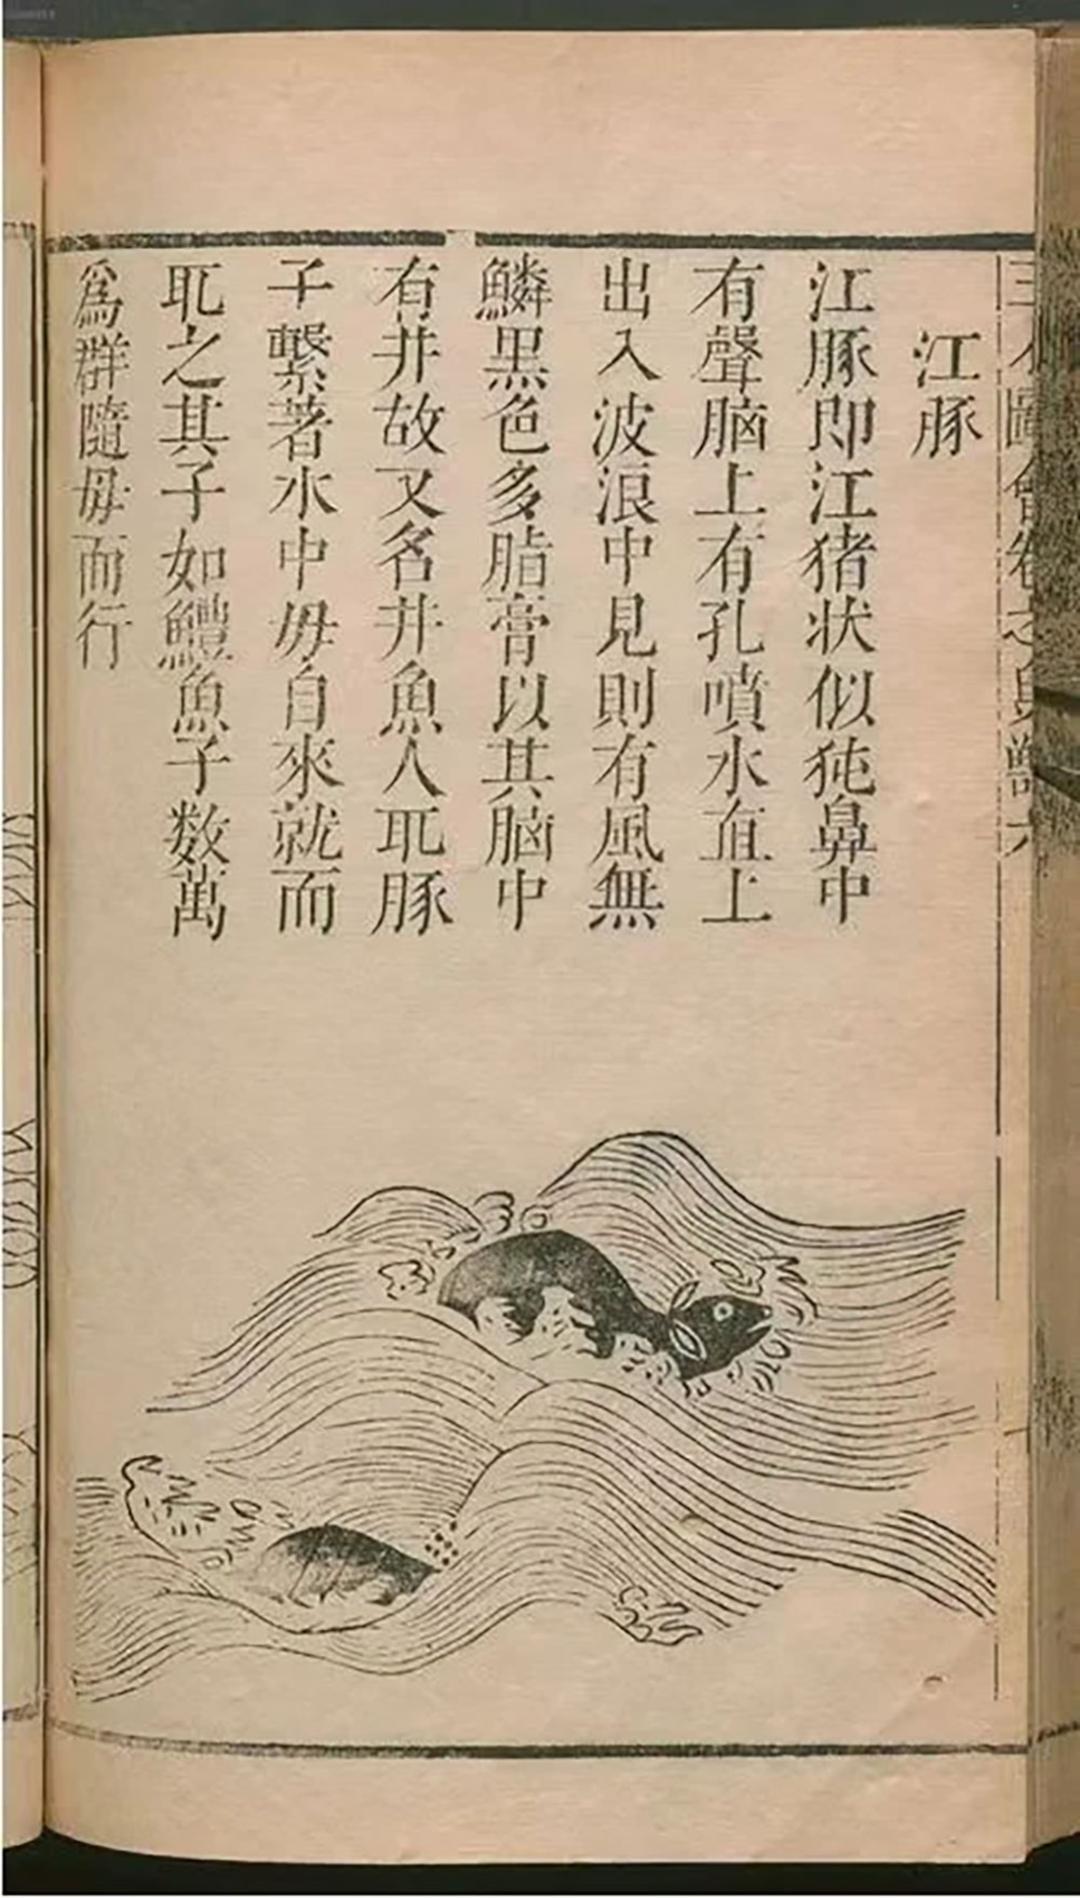 江豚
江豚即江猪狀似㹠鼻中
有聲脑上有孔噴水直上
出入波浪中見則有風無
鱗黑色多脂膏以其脑中
有井故又名井魚人取豚
子繫著水中母自來就而
取之其子如鱧魚子数萬
爲群隨母而行